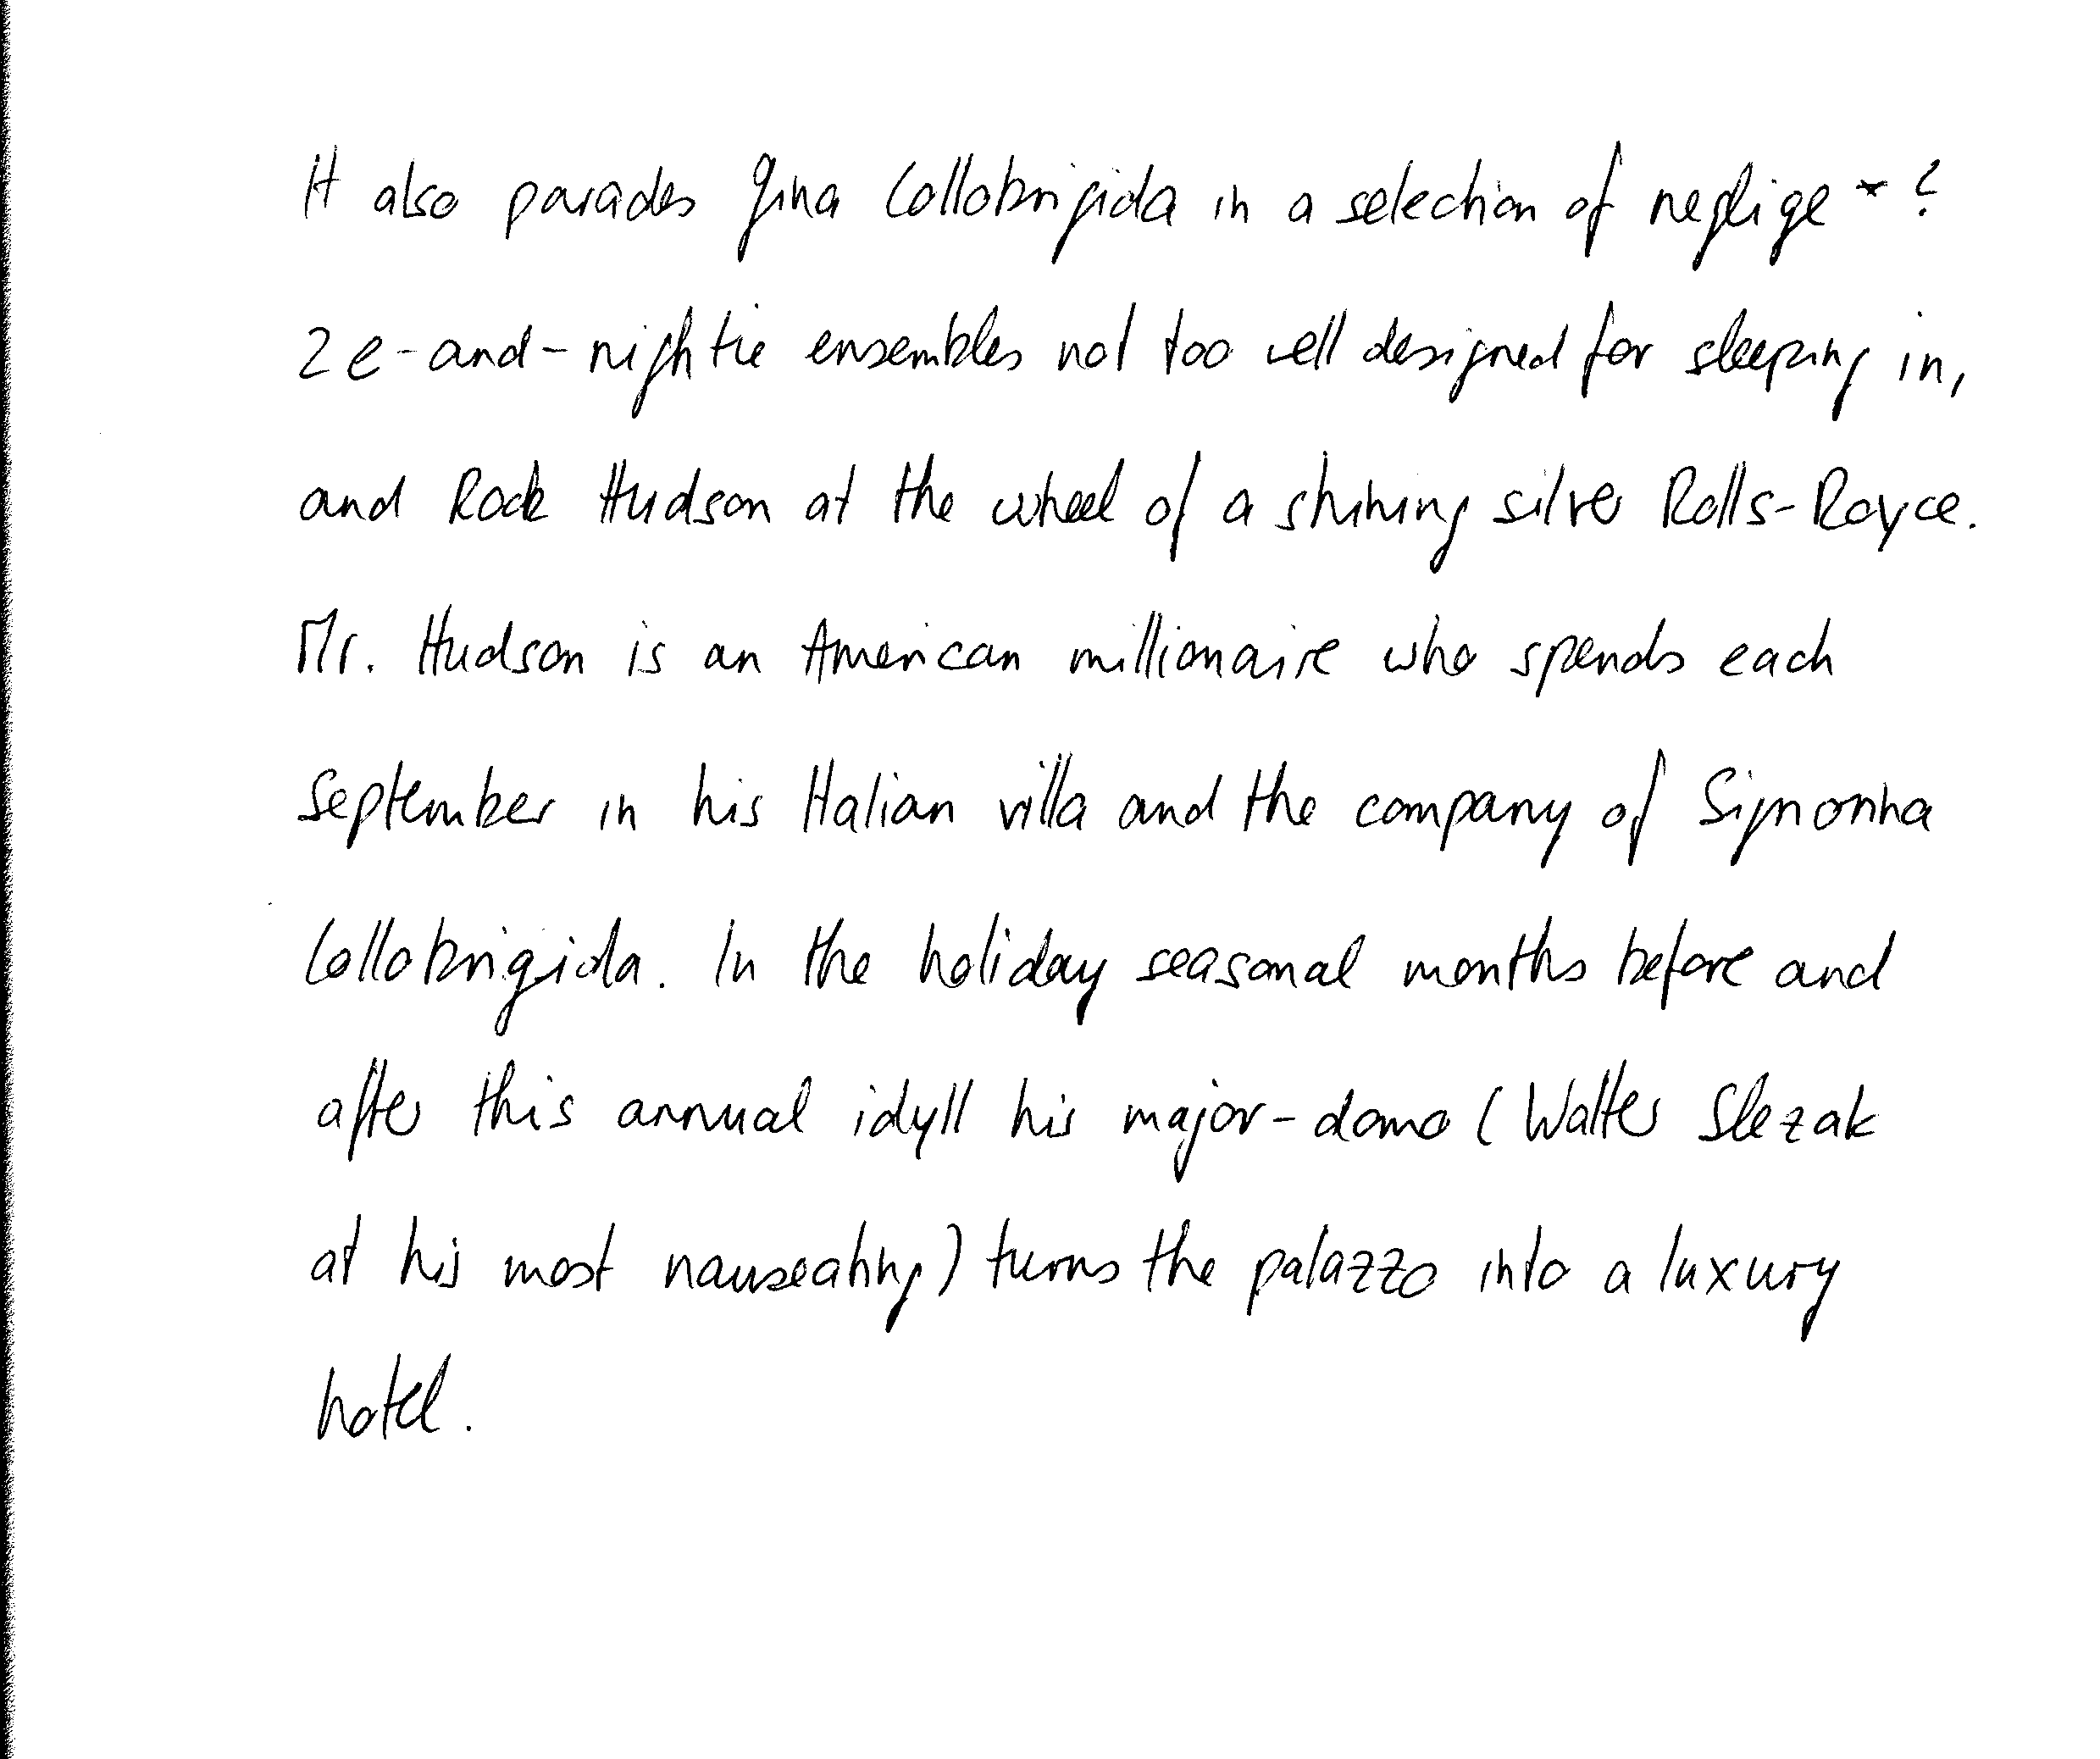 It also parades Gina Lollobrigida in a selection of neglige*?
2e-and-nightie ensembles not too well designed for sleeping in,
and Rock Hudson at the wheel of a shining silver Rolls-Royce.
Mr. Hudson is an American millionaire who spends each
September in his Italian villa and the company of Signorina
Lollobrigida. In the holiday seasonal months before and
after this annual idyll his major-domo (Walter Slezak
at his most nauseating) turns the palazzo into a luxury
hotel.